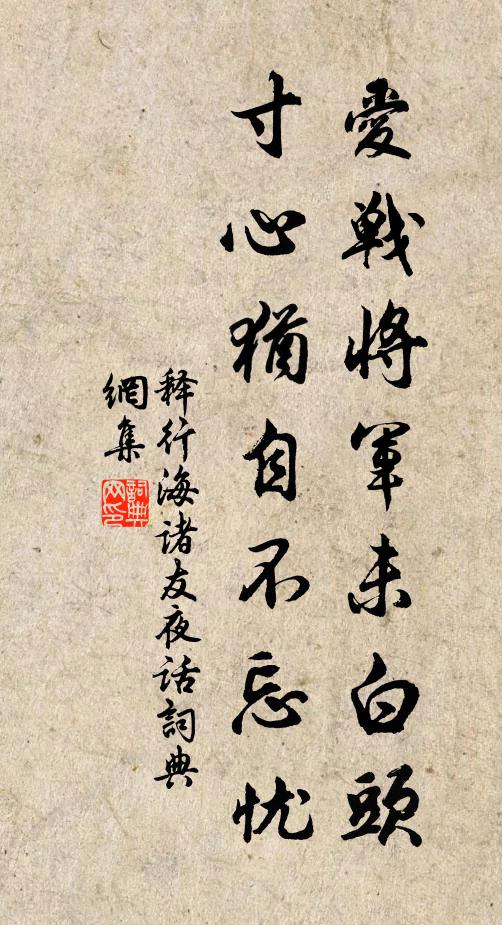 愛戰將軍未白頭
寸心猶自不忘忧
释行海诸友夜话詞典
網集
詞典
网印